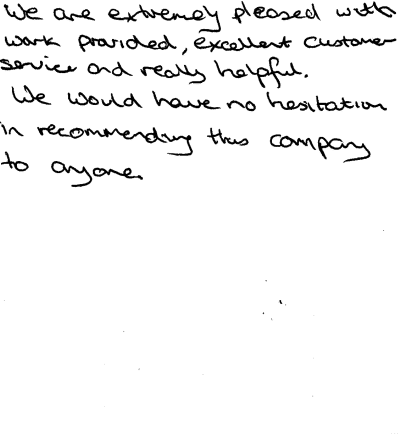 We are extremely pleased with
work provided, excellent customer
service and really helpful.
We would have no hesitation
in recommending this company
to anyone.